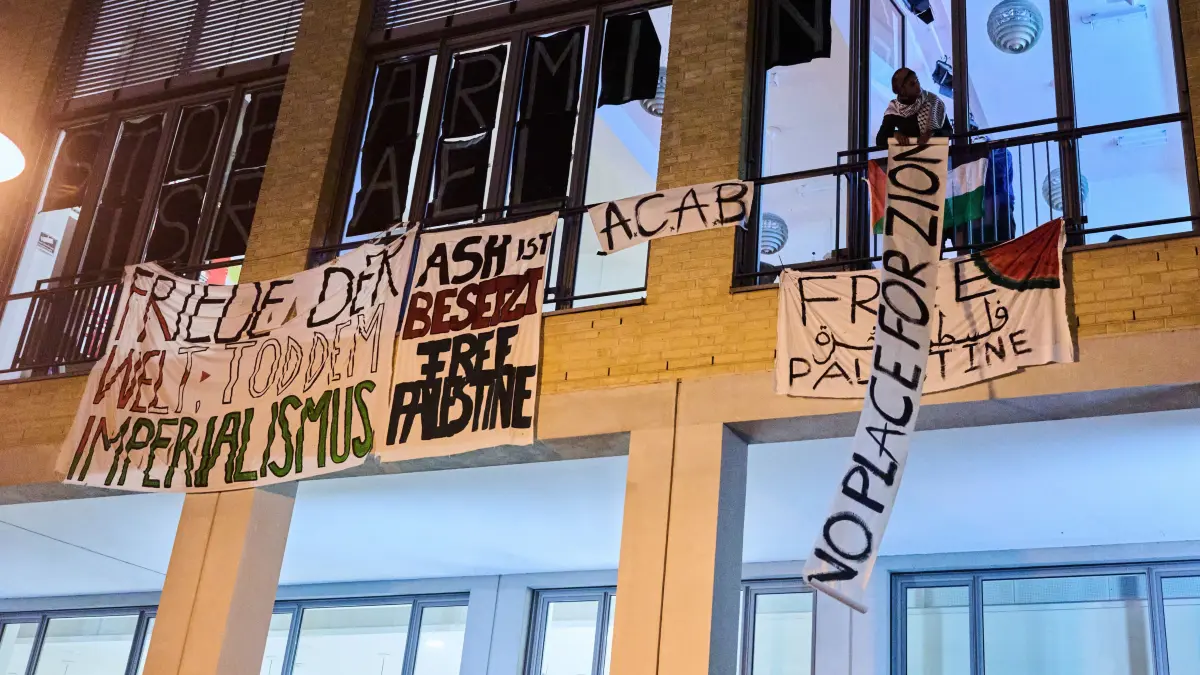 STOP ARMIN
ISRAEL
FRIEDE DER
WELT, TOD DEM
IMPERIALISMUS
ASH IST
BESETZT
FREE
PALESTINE
A.C.A.B
FREE
فلسطين حرة
PALESTINE
NO PLACE FOR ZION